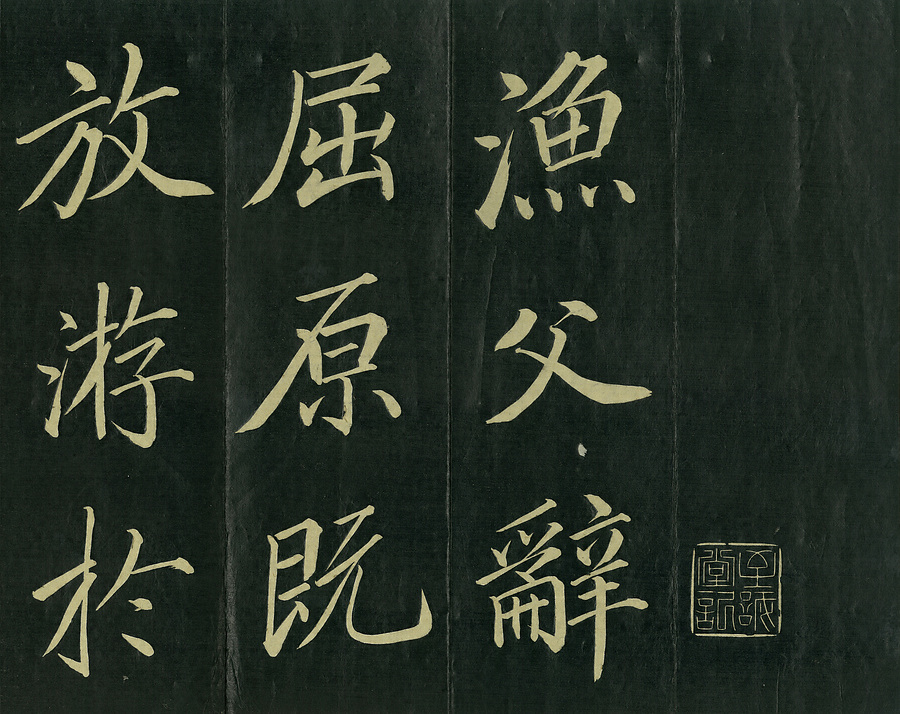 漁父辭
屈原既
放游於